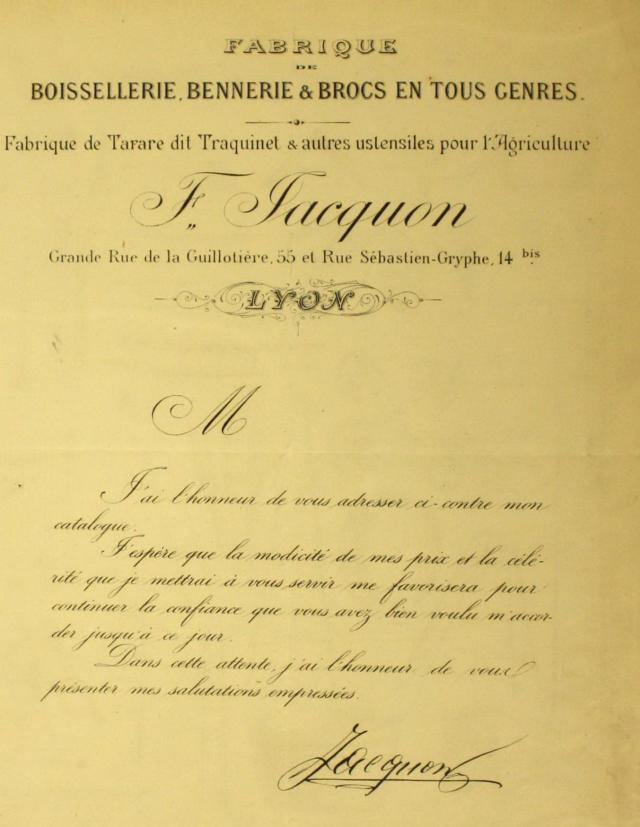 FABRIQUE
DE
BOISSELLERIE, BENNERIE & BROCS EN TOUS GENRES.
Fabrique de Tarare dit Traquinet & autres ustensiles pour l'Agriculture
F. Jacquon
Grande Rue de la Guillotière, 55 et Rue Sébastien-Gryphe, 14 bis
LYON
M
J'ai l'honneur de vous adresser ci-contre mon
catalogue.
J'espère que la modicité de mes prix et la célé-
rité que je mettrai à vous servir me favorisera pour
continuer la confiance que vous avez bien voulu m'accor-
der jusqu'à ce jour.
Dans cette attente, j'ai l'honneur de vous
présenter mes salutations empressées.
Jacquon